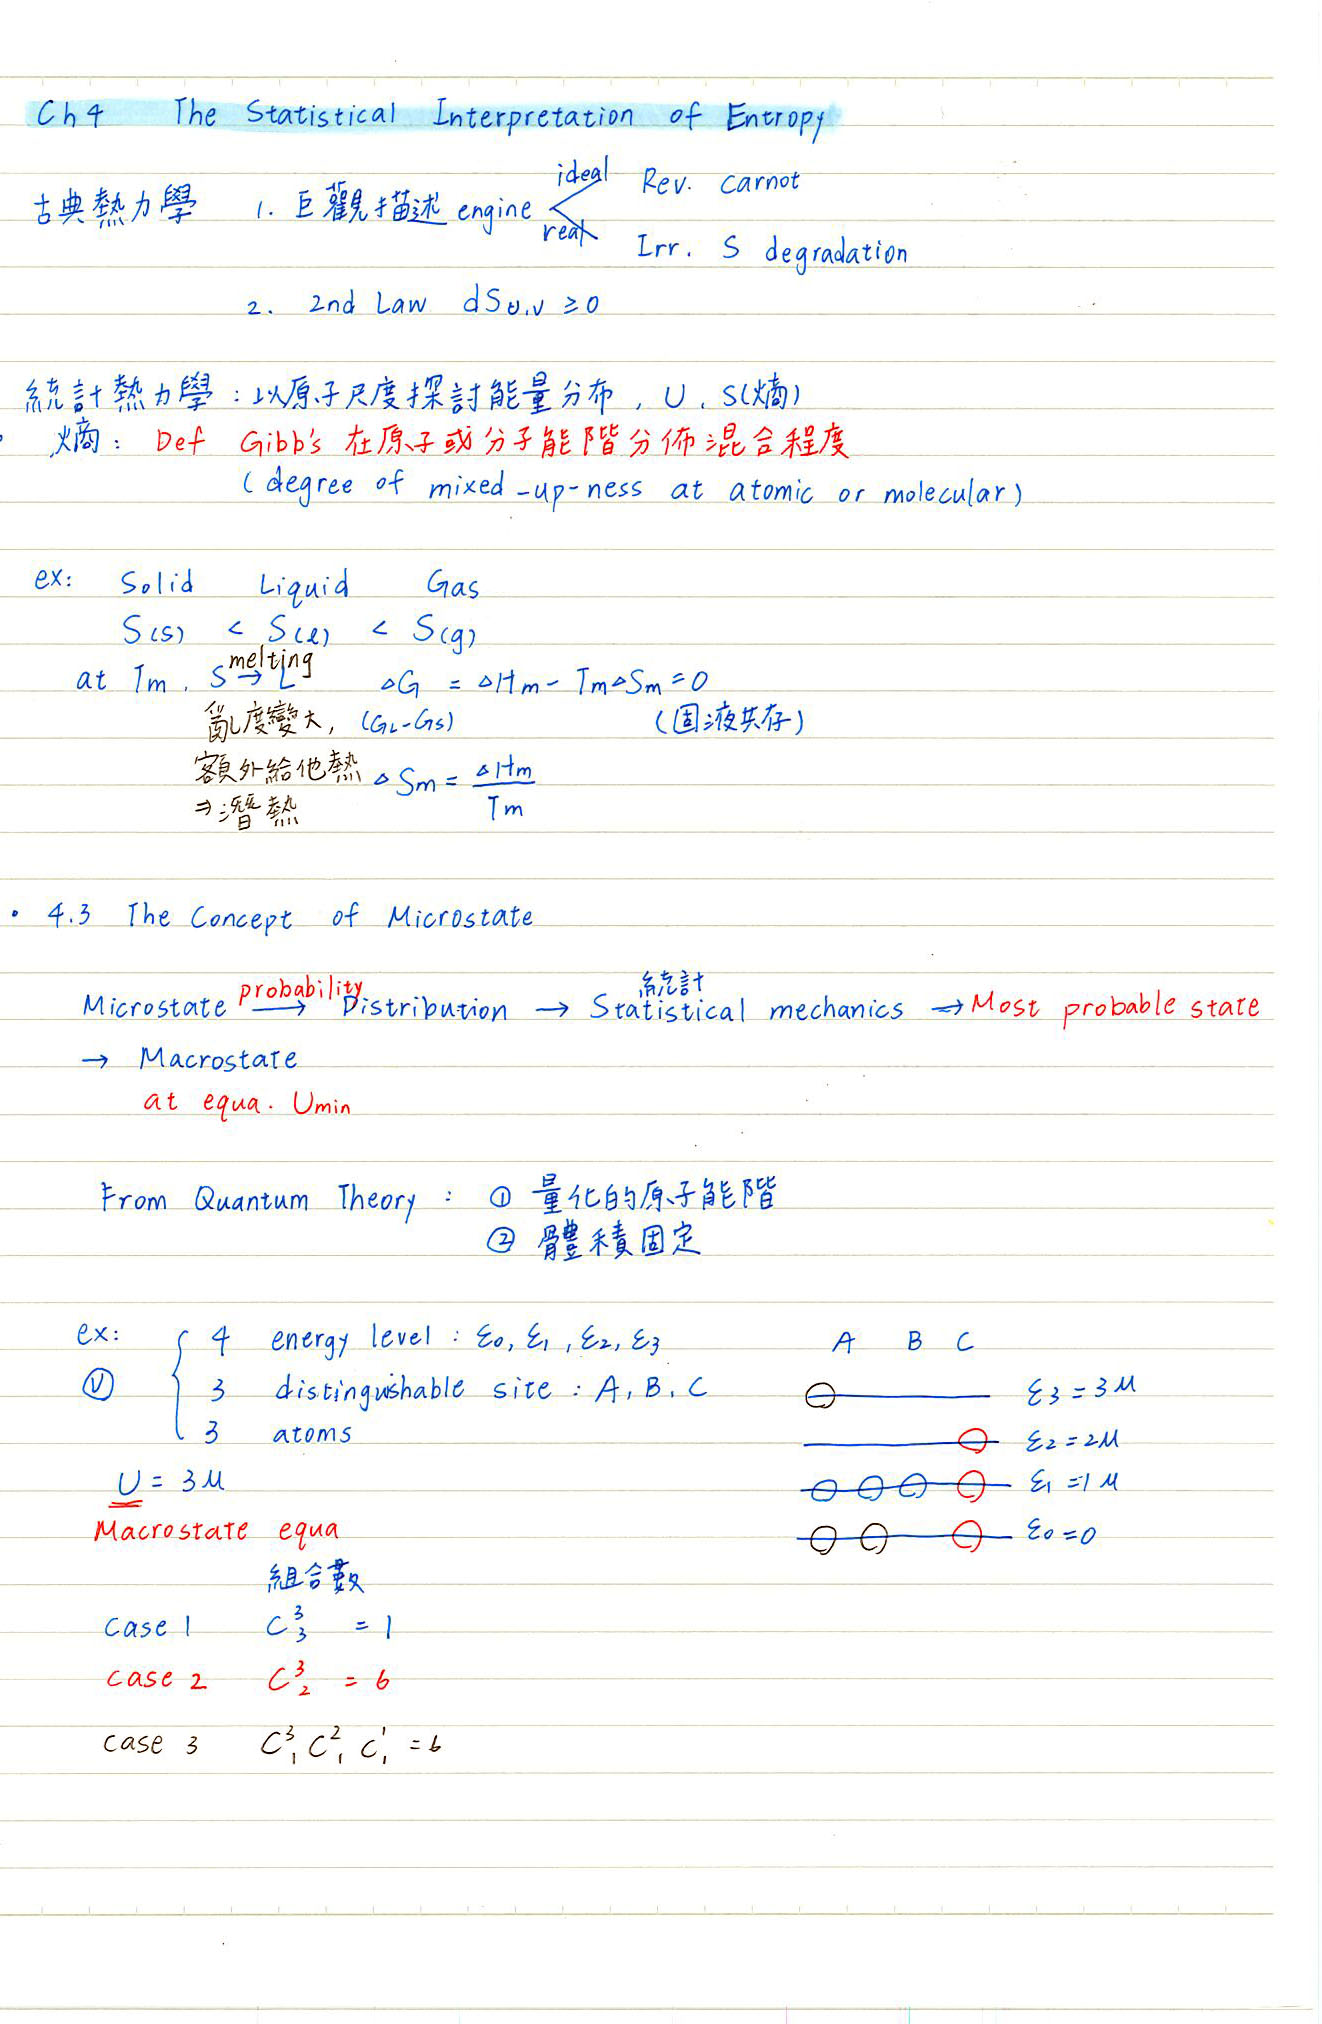 Ch4 The Statistical Interpretation of Entropy
古典熱力學 1. 巨觀描述 engine ideal Rev. Carnot
real Irr. S degradation
2. 2nd Law dS U,V ≥ 0
統計熱力學：以原子尺度探討能量分布，U、S(熵)
熵：Def Gibb's 在原子或分子能階分佈混合程度
(degree of mixed-up-ness at atomic or molecular)
ex: Solid Liquid Gas
S(s) < S(l) < S(g)
at Tm, S melting → L △G = △Hm - Tm△Sm = 0
亂度變大, (GL-GS) (固液共存)
額外給他熱 △Sm = △Hm / Tm
⇒潛熱
• 4.3 The Concept of Microstate
Microstate probability → Distribution → 統計 Statistical mechanics → Most probable state
→ Macrostate
at equa. Umin
From Quantum Theory : ① 量化的原子能階
② 體積固定
ex: 4 energy level : ε0, ε1, ε2, ε3 A B C
Ⓥ 3 distinguishable site : A, B, C ε3 = 3u
3 atoms ε2 = 2u
U = 3u ε1 = 1u
Macrostate equa ε0 = 0
組合數
case 1 C³₃ = 1
case 2 C³₂ = 6
case 3 C³₁ C²₁ C¹₁ = 6